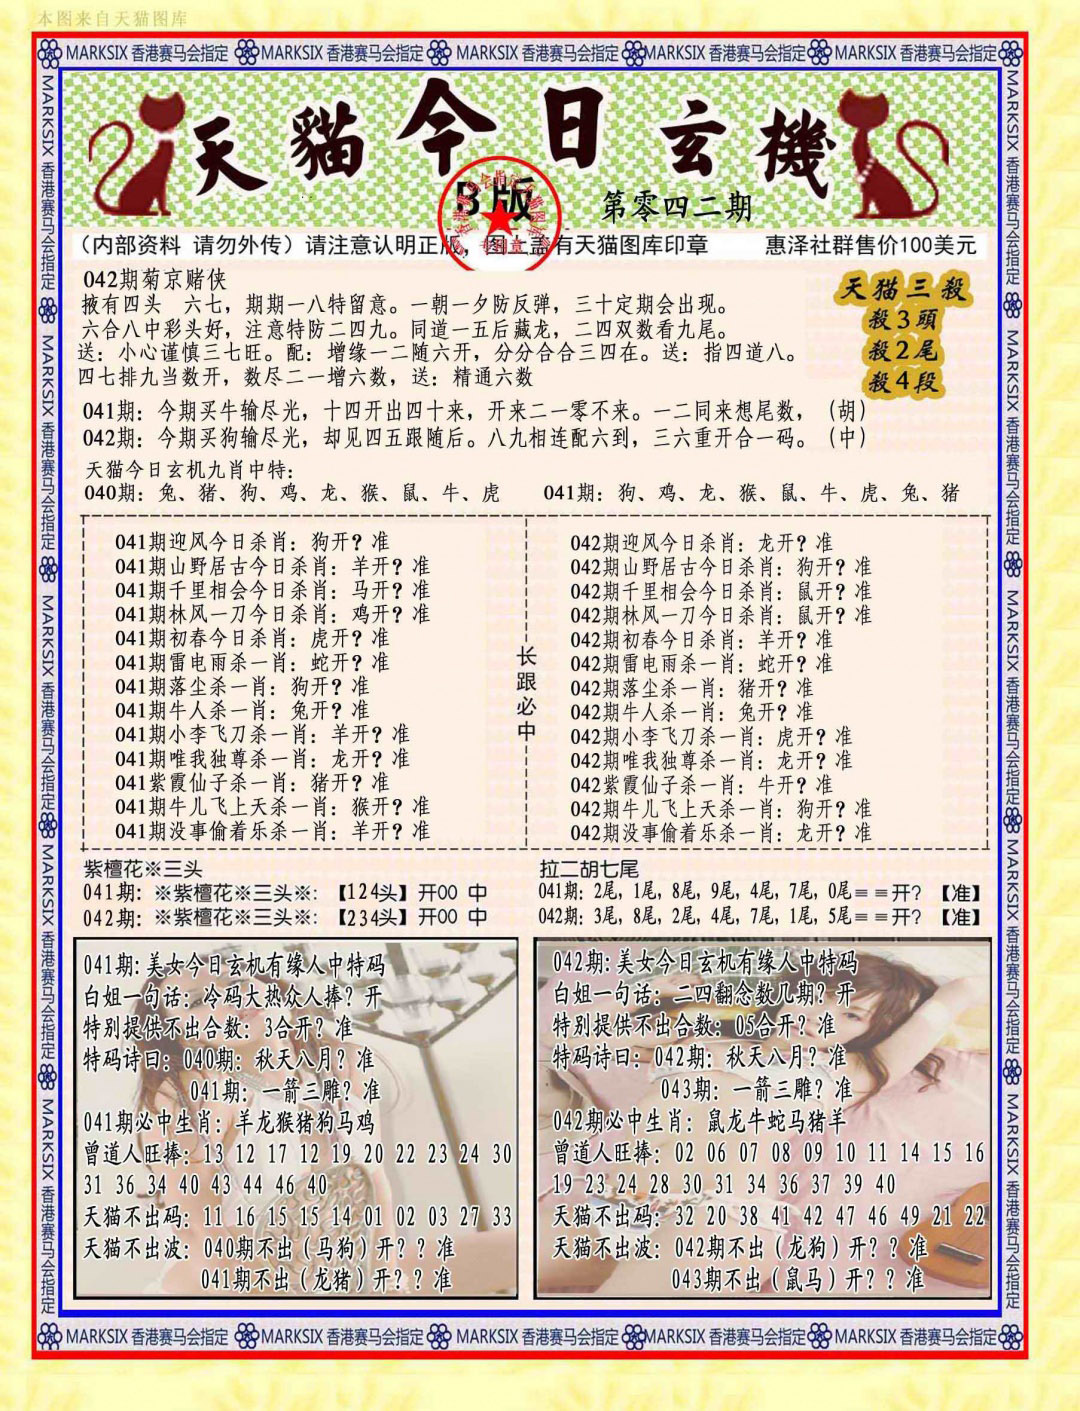 本图来自天猫图库
MARKSIX 香港赛马会指定 MARKSIX 香港赛马会指定 MARKSIX 香港赛马会指定 MARKSIX 香港赛马会指定 MARKSIX 香港赛马会指定
天貓今日玄機
B版
第零四二期
（内部资料 请勿外传）请注意认明正版，图上盖有天猫图库印章 惠泽社群售价100美元
042期菊京赌侠
掖有四头 六七，期期一八特留意。一朝一夕防反弹，三十定期会出现。
六合八中彩头好，注意特防二四九。同道一五后藏龙，二四双数看九尾。
送：小心谨慎三七旺。配：增缘一二随六开，分分合合三四在。送：指四道八。
四七排九当数开，数尽二一增六数，送：精通六数
天猫三殺
殺3頭
殺2尾
殺4段
041期：今期买牛输尽光，十四开出四十来，开来二一零不来。一二同来想尾数，（胡）
042期：今期买狗输尽光，却见四五跟随后。八九相连配六到，三六重开合一码。（中）
天猫今日玄机九肖中特：
040期：兔、猪、狗、鸡、龙、猴、鼠、牛、虎 041期：狗、鸡、龙、猴、鼠、牛、虎、兔、猪
041期迎风今日杀肖：狗开？准
041期山野居古今日杀肖：羊开？准
041期千里相会今日杀肖：马开？准
041期林风一刀今日杀肖：鸡开？准
041期初春今日杀肖：虎开？准
041期雷电雨杀一肖：蛇开？准
041期落尘杀一肖：狗开？准
041期牛人杀一肖：兔开？准
041期小李飞刀杀一肖：羊开？准
041期唯我独尊杀一肖：龙开？准
041紫霞仙子杀一肖：猪开？准
041期牛儿飞上天杀一肖：猴开？准
041期没事偷着乐杀一肖：羊开？准
长跟必中
042期迎风今日杀肖：龙开？准
042期山野居古今日杀肖：狗开？准
042期千里相会今日杀肖：鼠开？准
042期林风一刀今日杀肖：鼠开？准
042期初春今日杀肖：羊开？准
042期雷电雨杀一肖：蛇开？准
042期落尘杀一肖：猪开？准
042期牛人杀一肖：兔开？准
042期小李飞刀杀一肖：虎开？准
042期唯我独尊杀一肖：龙开？准
042紫霞仙子杀一肖：牛开？准
042期牛儿飞上天杀一肖：狗开？准
042期没事偷着乐杀一肖：龙开？准
紫檀花※三头
041期：※紫檀花※三头※：【124头】开00 中
042期：※紫檀花※三头※：【234头】开00 中
拉二胡七尾
041期：2尾，1尾，8尾，9尾，4尾，7尾，0尾＝＝开？【准】
042期：3尾，8尾，2尾，4尾，7尾，1尾，5尾＝＝开？【准】
041期:美女今日玄机有缘人中特码
白姐一句话：冷码大热众人捧？开
特别提供不出合数：3合开？准
特码诗曰：040期：秋天八月？准
041期：一箭三雕？准
041期必中生肖：羊龙猴猪狗马鸡
曾道人旺捧：13 12 17 12 19 20 22 23 24 30
31 36 34 40 43 44 46 40
天猫不出码：11 16 15 15 14 01 02 03 27 33
天猫不出波：040期不出（马狗）开？？准
041期不出（龙猪）开？？准
042期:美女今日玄机有缘人中特码
白姐一句话：二四翻念数几期？开
特别提供不出合数：05合开？准
特码诗曰：042期：秋天八月？准
043期：一箭三雕？准
042期必中生肖：鼠龙牛蛇马猪羊
曾道人旺捧：02 06 07 08 09 10 11 14 15 16
19 23 24 28 30 31 34 36 37 39 40
天猫不出码：32 20 38 41 42 47 46 49 21 22
天猫不出波：042期不出（龙狗）开？？准
043期不出（鼠马）开？？准
MARKSIX 香港赛马会指定 MARKSIX 香港赛马会指定 MARKSIX 香港赛马会指定 MARKSIX 香港赛马会指定 MARKSIX 香港赛马会指定